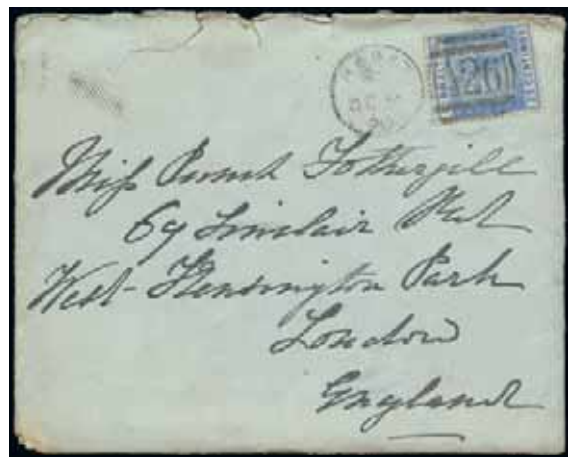 A26
Miss Fothergill
69 Sinclair Rd
West-Kensington Park
London
England